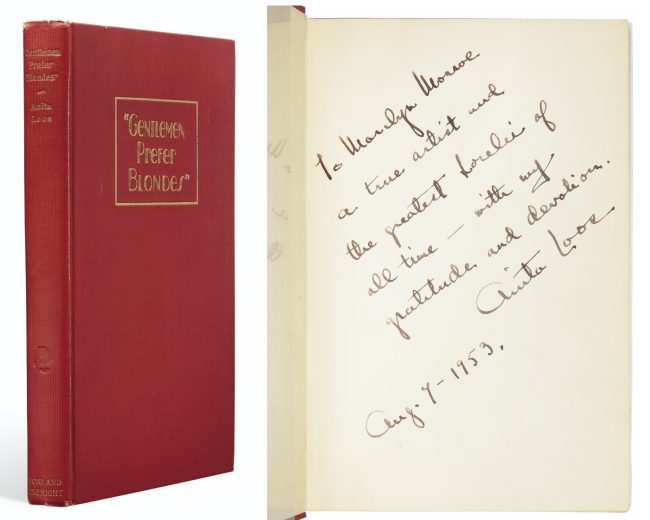 Gentlemen
Prefer
Blondes"
Anita
Loos
BONI AND
LIVERIGHT
"GENTLEMEN
PREFER
BLONDES"
To Marilyn Monroe
a true artist and
the greatest Lorelei of
all time — with my
gratitude and devotion.
Anita Loos
Aug. 7 – 1953.